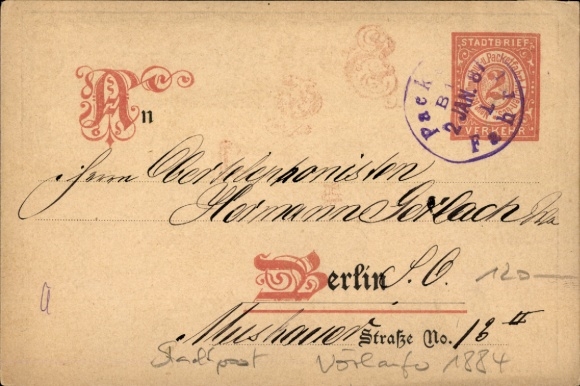 STADTBRIEF
VERKEHR
2
Pack
2 JAN. 87
Fah
An
Herrn Obertelephonisten
Hermann Gerlach
Berlin S. O.
120
Straße No. 18 II
Stadtpost Vorläufer 1884